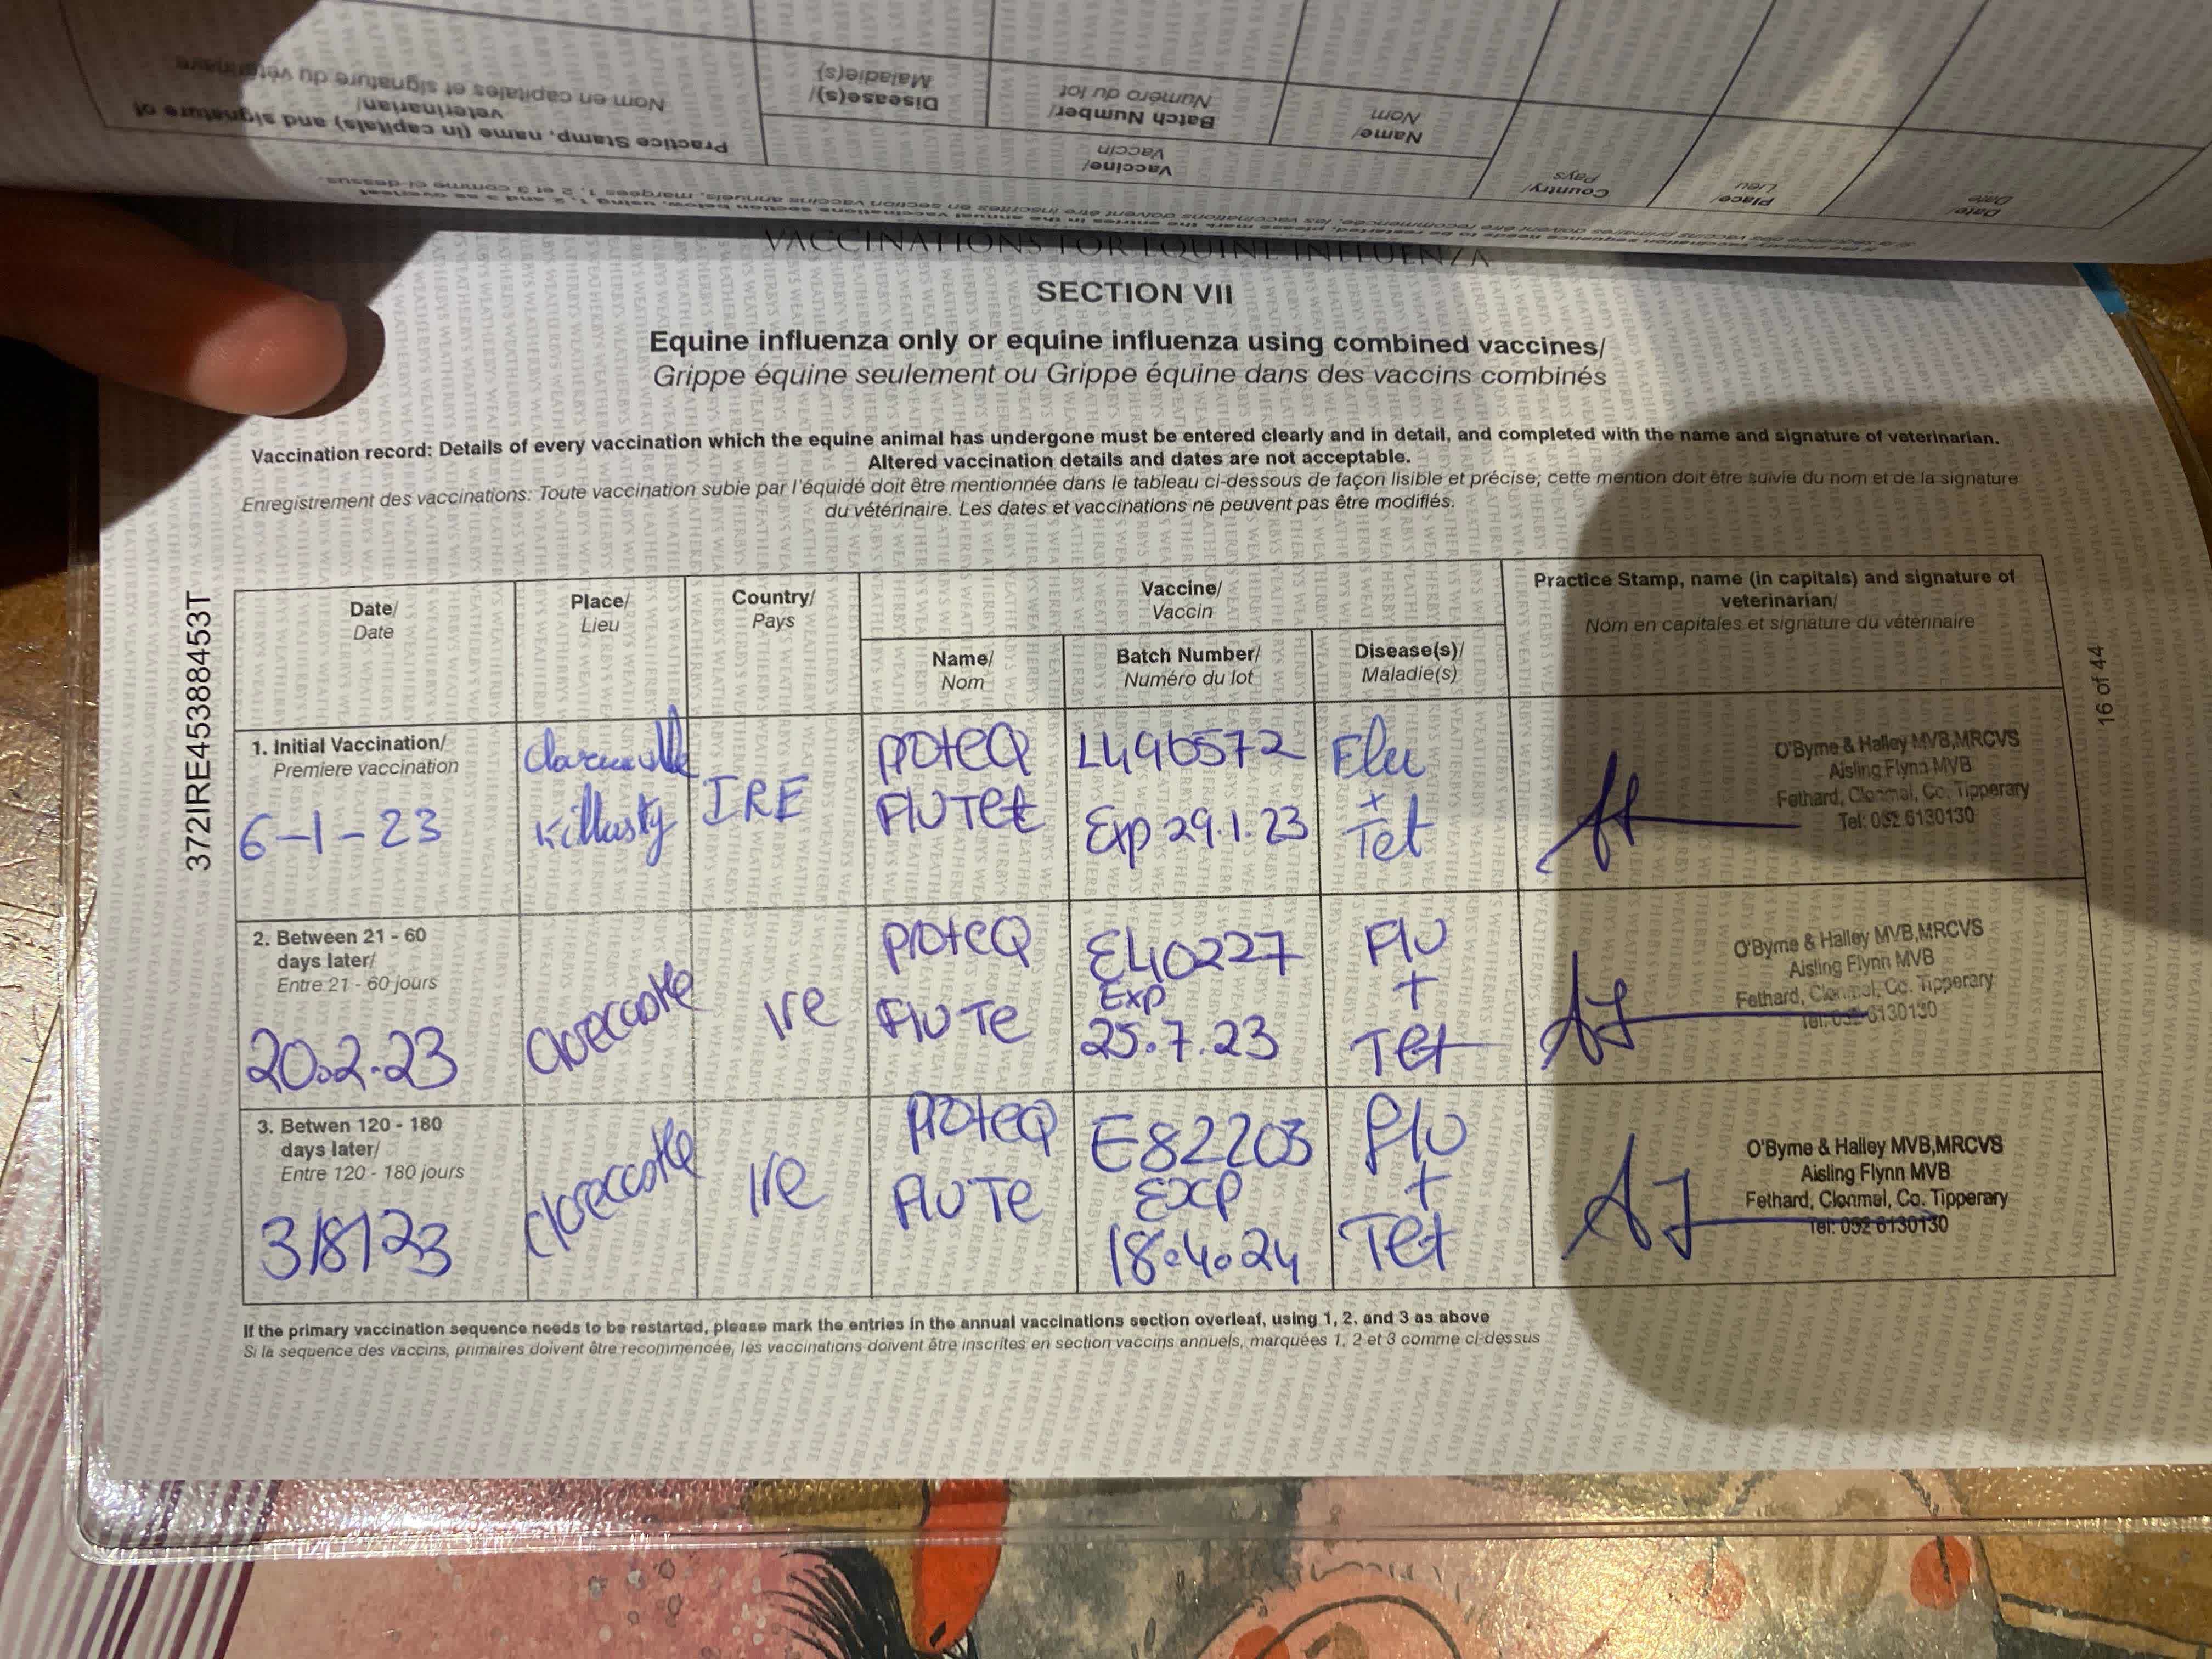 Practice Stamp, name (in capitals) and signature of
veterinarian/
Nom en capitales et signature du vétérinaire
Disease(s)/
Maladie(s)
Batch Number/
Numéro du lot
Name/
Nom
Vaccine/
Vaccin
Country/
Pays
Place/
Lieu
Date/
Date
VACCINATIONS FOR EQUINE INFLUENZA
SECTION VII
Equine influenza only or equine influenza using combined vaccines/
Grippe équine seulement ou Grippe équine dans des vaccins combinés
Vaccination record: Details of every vaccination which the equine animal has undergone must be entered clearly and in detail, and completed with the name and signature of veterinarian.
Altered vaccination details and dates are not acceptable.
Enregistrement des vaccinations: Toute vaccination subie par l'équidé doit être mentionnée dans le tableau ci-dessous de façon lisible et précise; cette mention doit être suivie du nom et de la signature
du vétérinaire. Les dates et vaccinations ne peuvent pas être modifiés.
372IRE45388453T
16 of 44
Date/
Date
Place/
Lieu
Country/
Pays
Vaccine/
Vaccin
Name/
Nom
Batch Number/
Numéro du lot
Disease(s)/
Maladie(s)
Practice Stamp, name (in capitals) and signature of
veterinarian/
Nom en capitales et signature du vétérinaire
1. Initial Vaccination/
Premiere vaccination
6-1-23
Killusty
IRE
ProteQ
FLU Tet
L496572
Exp 29.1.23
Flu
+
Tet
O'Byrne & Halley MVB,MRCVS
Aisling Flynn MVB
Fethard, Clonmel, Co. Tipperary
Tel: 052 6130130
2. Between 21 - 60
days later/
Entre 21 - 60 jours
20.2.23
Ire
ProteQ
FLU Te
E40227
Exp
25.7.23
Flu
+
Tet
O'Byrne & Halley MVB,MRCVS
Aisling Flynn MVB
Fethard, Clonmel, Co. Tipperary
Tel: 052 6130130
3. Betwen 120 - 180
days later/
Entre 120 - 180 jours
3/8/23
Ire
ProteQ
FLU Te
E82203
EXP
18.4.24
Flu
+
Tet
O'Byrne & Halley MVB,MRCVS
Aisling Flynn MVB
Fethard, Clonmel, Co. Tipperary
Tel: 052 6130130
If the primary vaccination sequence needs to be restarted, please mark the entries in the annual vaccinations section overleaf, using 1, 2, and 3 as above
Si la sequence des vaccins, primaires doivent être recommencée, les vaccinations doivent être inscrites en section vaccins annuels, marquées 1, 2 et 3 comme ci-dessus